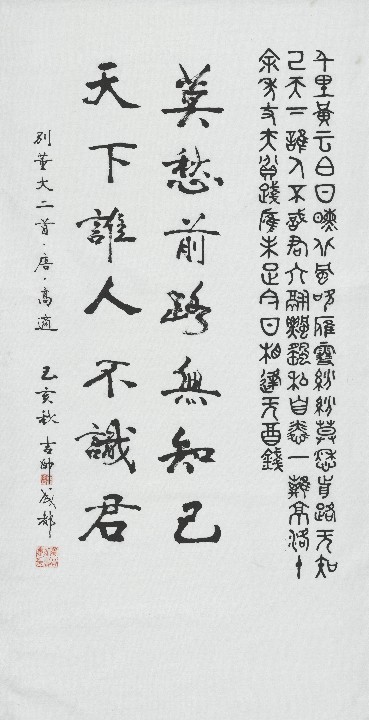 千里黃云白日曛北風吹雁雪紛紛莫愁前路无知
己天下誰人不識君六翮飄颻私自憐一離京洛十
余年丈夫貧賤應未足今日相逢无酒錢
莫愁前路無知己
天下誰人不識君
別董大二首·唐·高適 己亥秋吉 成都